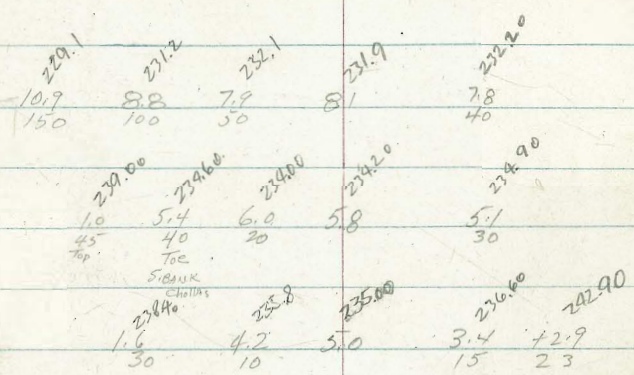 229.1 231.2 232.1 231.9 232.20
10.9 8.8 7.9 8.1 7.8
150 100 50 40
239.00 234.60 234.00 234.20 234.90
1.0 5.4 6.0 5.8 5.1
45 40 20 30
Top Toe
S. BANK
Chollas
238.40 235.8 235.00 236.60 242.90
1.6 4.2 5.0 3.4 +2.9
30 10 15 23